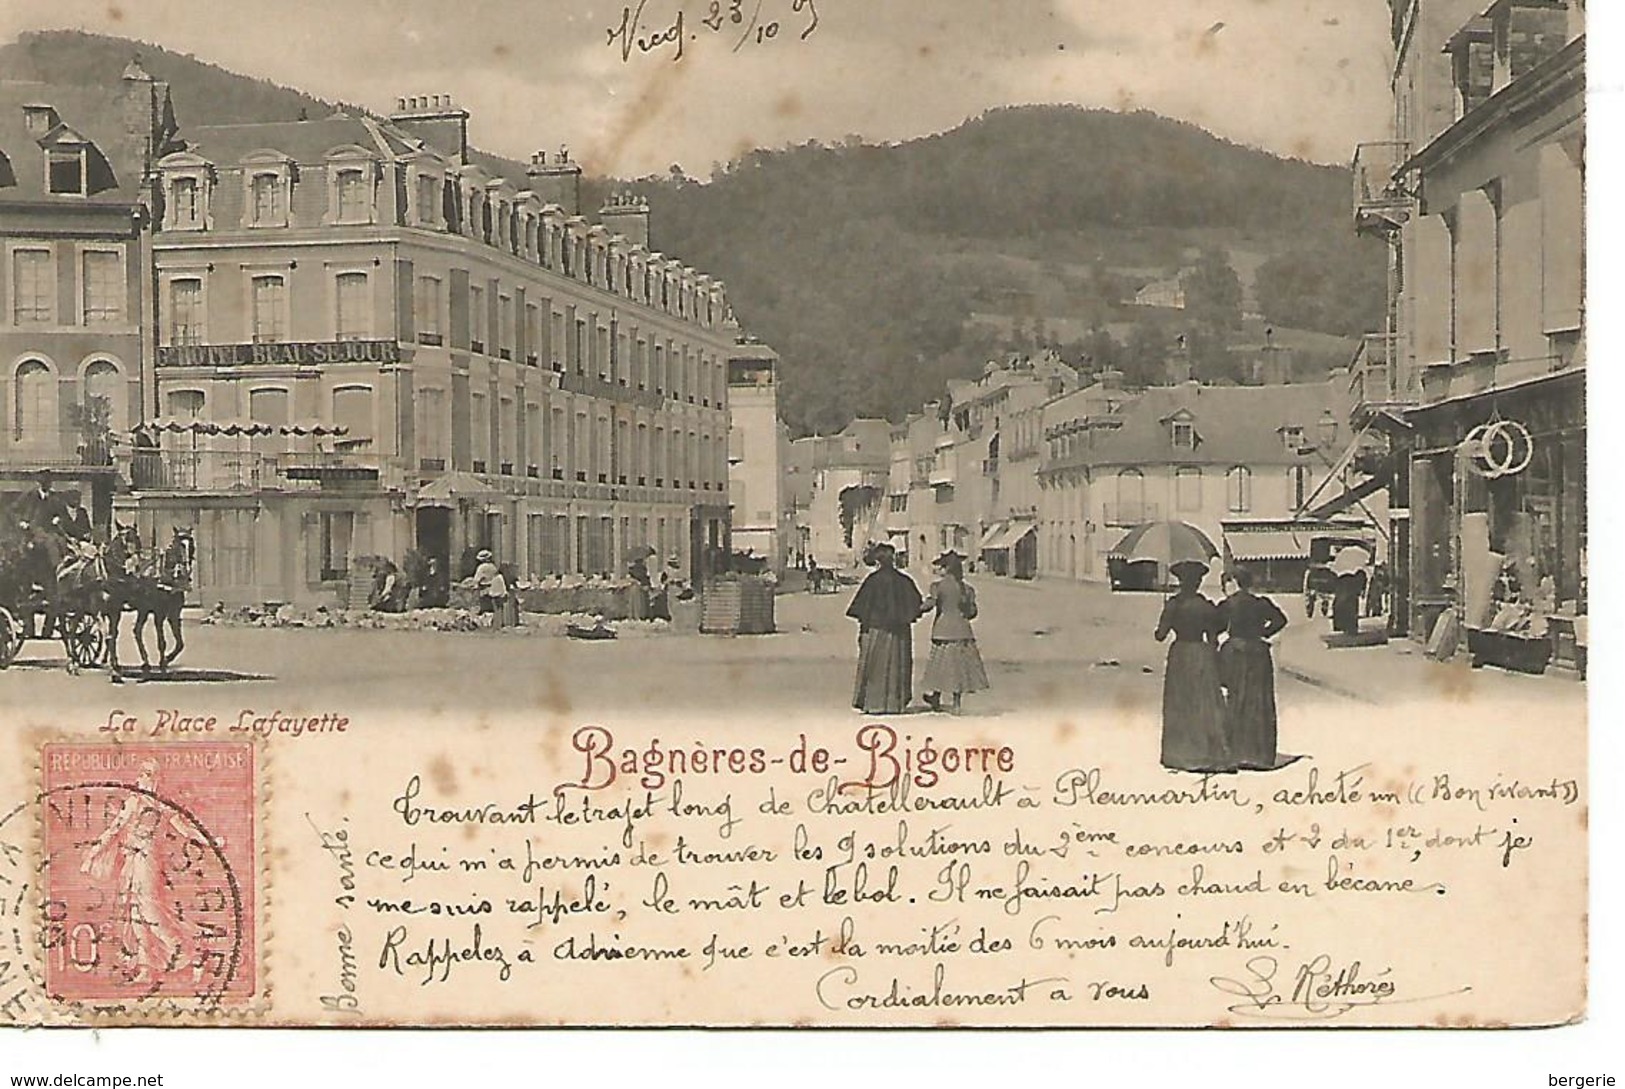 Vicq. 23/10 5
Gd HOTEL BEAU SEJOUR
La Place Lafayette
Bagnères-de-Bigorre
REPUBLIQUE FRANÇAISE
10c
Trouvant le trajet long de Chatellerault à Pleumartin, acheté un "Bon vivant"
ce qui m'a permis de trouver les 9 solutions du 2ème concours et 2 du 1er, dont je
me suis rappelé, le mât et le bol. Il ne faisait pas chaud en bécane.
Rappelez à Adrienne que c'est la moitié des 6 mois aujourd'hui.
Cordialement a vous
Réthoré
Bonne santé.
www.delcampe.net
bergerie